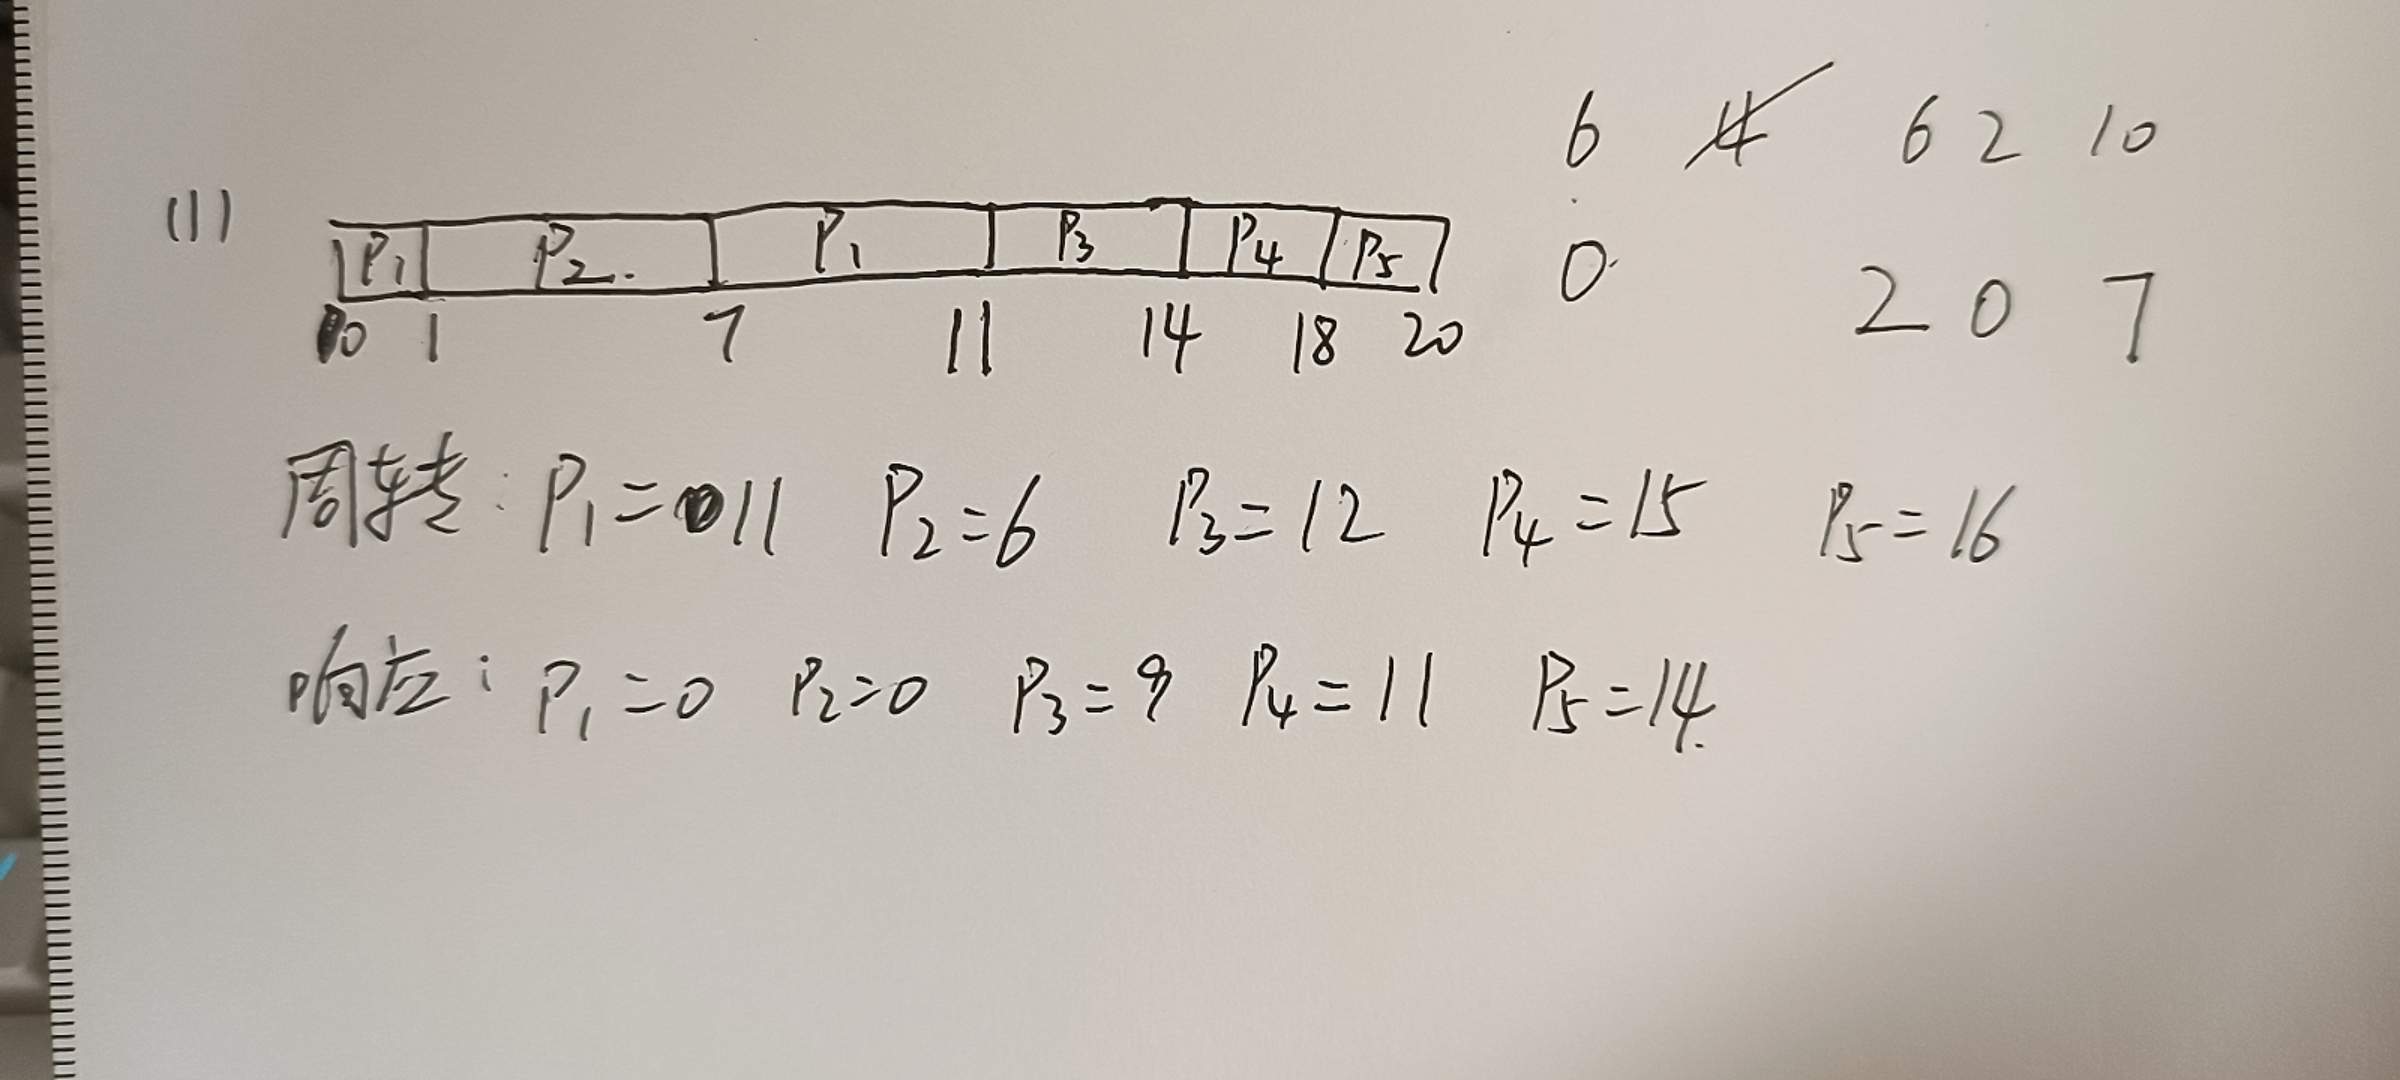 6 6 2 10
(1) P1 P2. P1 P3 P4 P5
0 2 0 7
0 1 7 11 14 18 20
周转: P1=11 P2=6 P3=12 P4=15 P5=16
响应: P1=0 P2=0 P3=9 P4=11 P5=14.